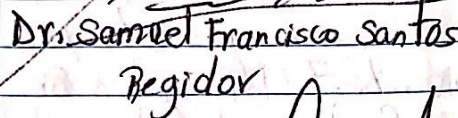 Dr. Samuel Francisco Santos
Regidor